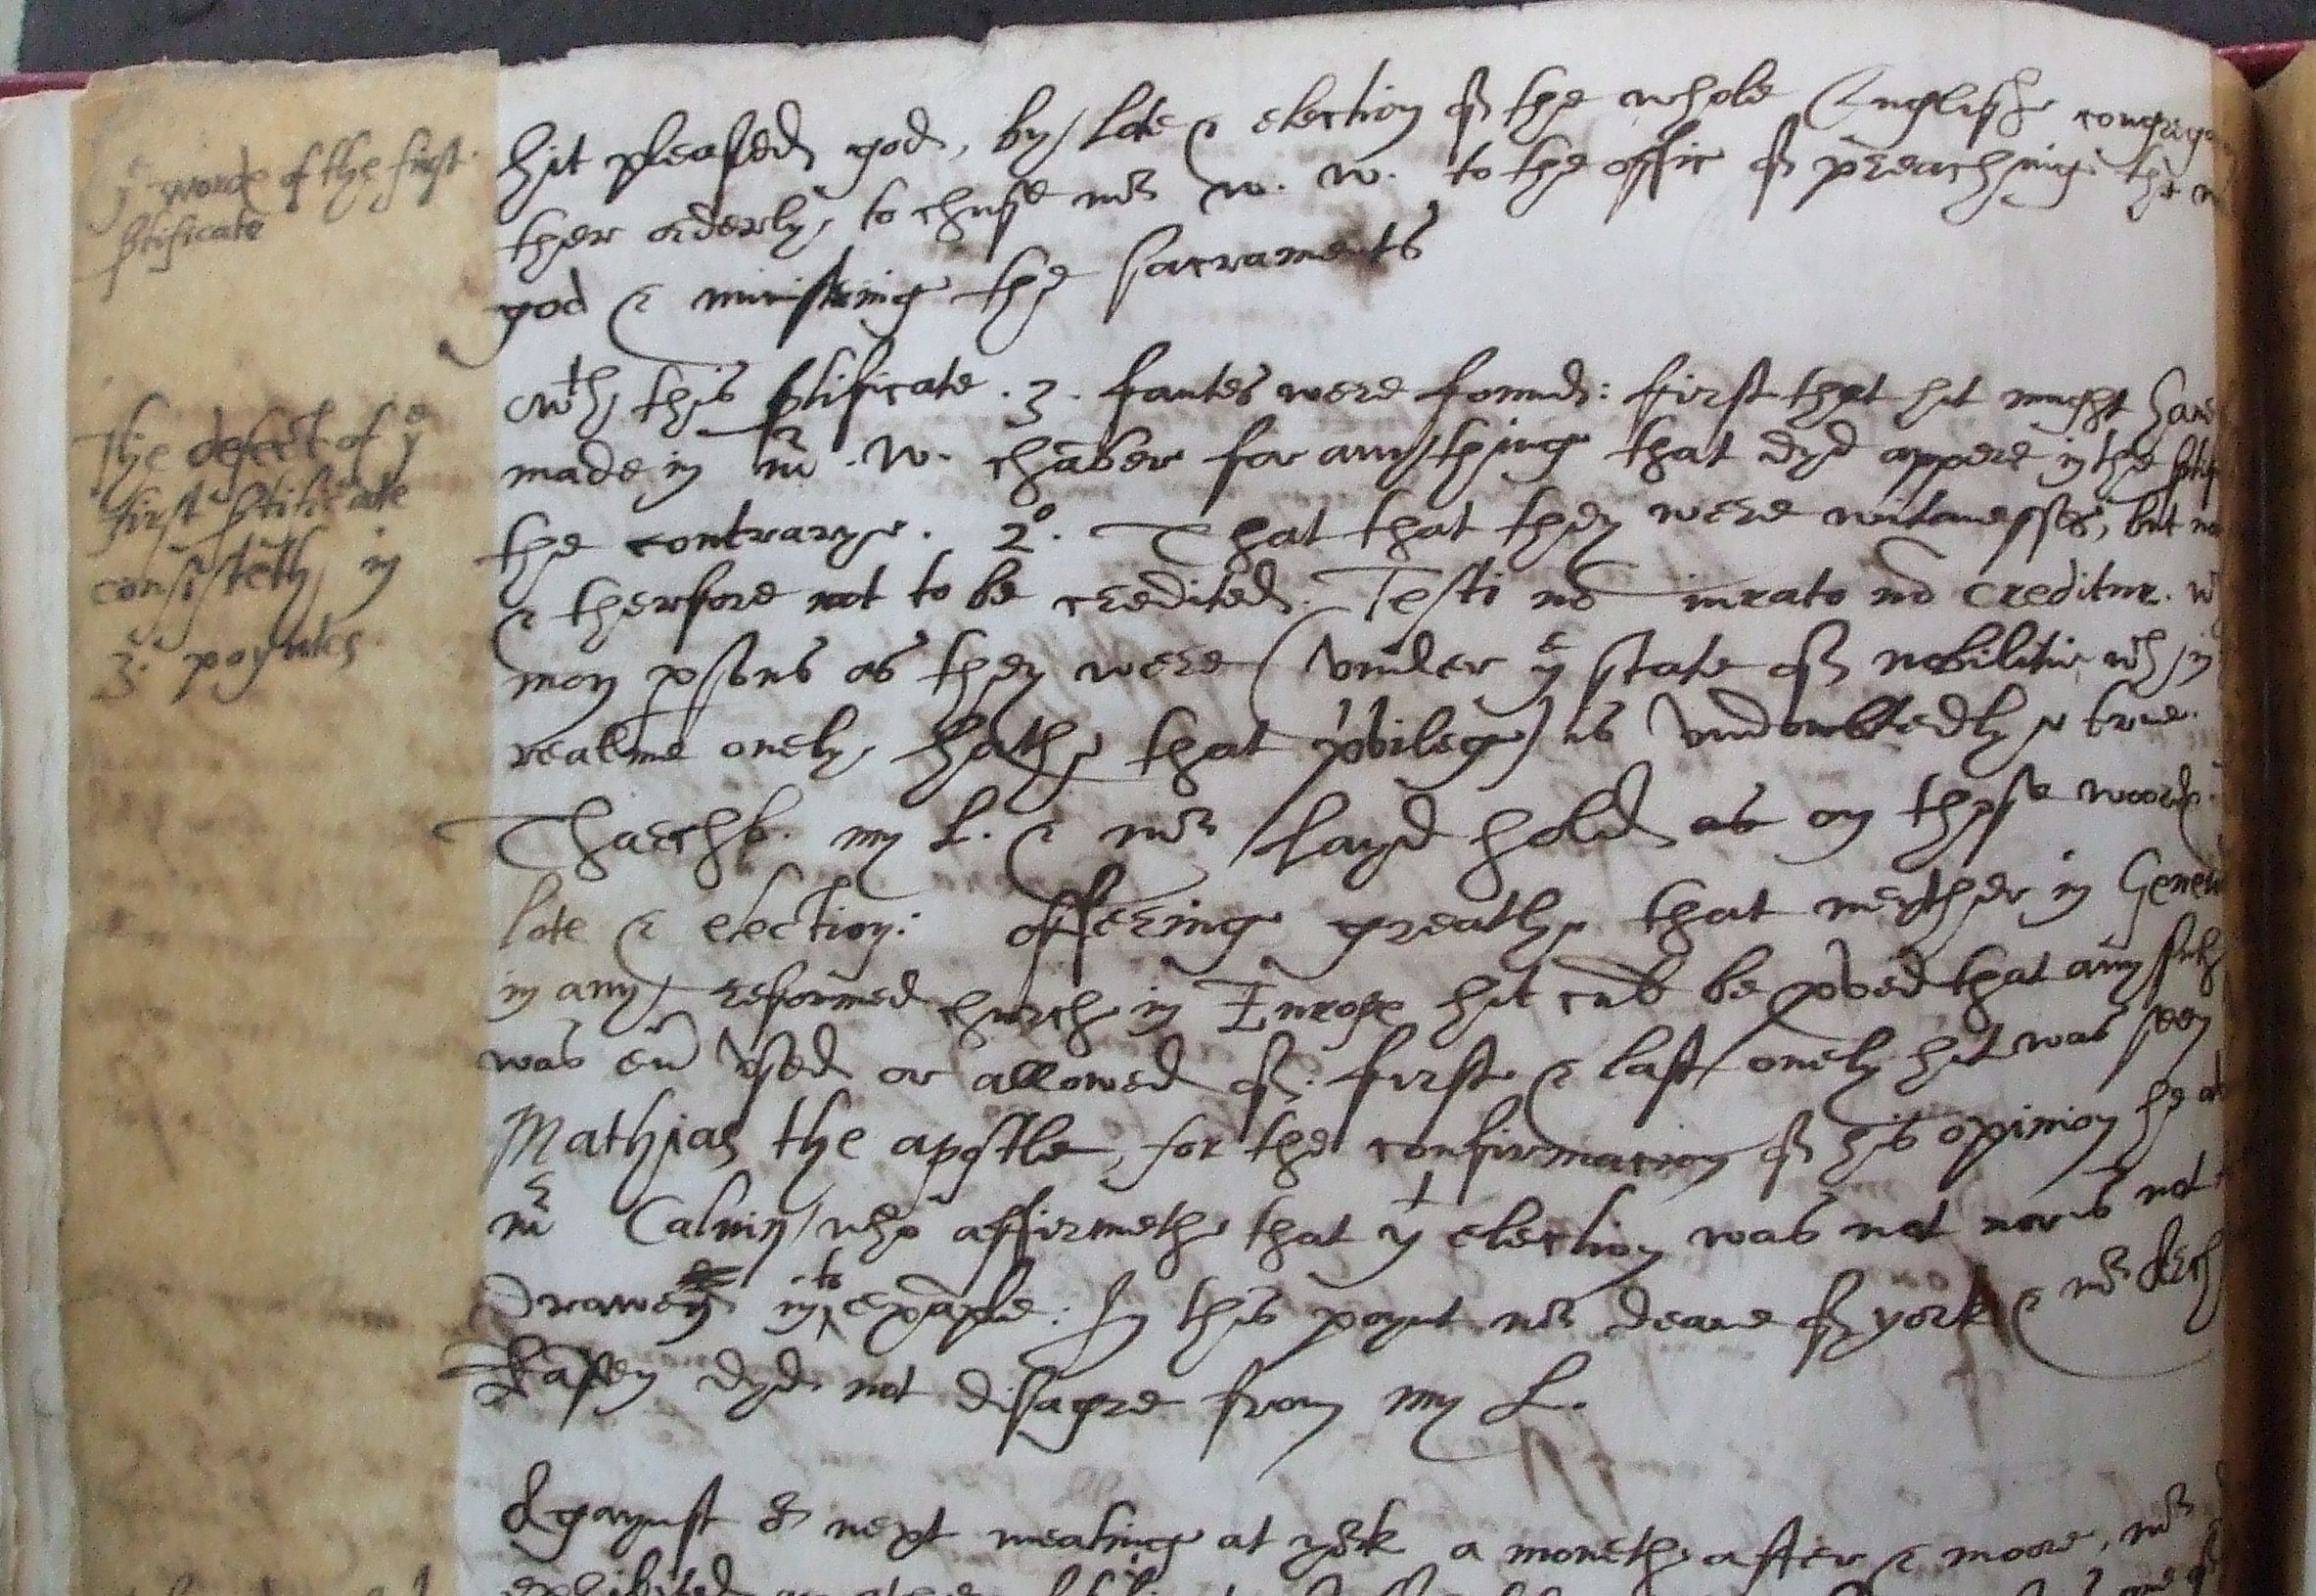 yᵉ wordes of the first
certificate
hit pleased god, by lote & election of the whole Englishe congrega
ther orderly, to chuse mr W. W. to the office of preaching the w
god & ministring the sacraments
The defect of yᵉ
first certificate
consisteth in
3. poyntes
wth this certificate .3. fautes were found: first that hit myght have
made in mr .W. chāber for any thing that dyd appere in the certif
the contrarye. 2º. That that they were witnesses, but no
& therfore not to be credited. Testi nō iurato nō creditur. w
mon psons as they were (vnder yᵉ state of nobilitie wch in
realme onely, hathe that privilege) is vndoubtedlye true.
Tharchb. my L. & mr layd hold as on these wordes
lote & election: offering greatly that neyther in Genev
in any reformed church in Europe hit culd be proved that any such
was eū vsed or allowed of. first & last onely hit was seen
Mathias the apostle, for the confirmacion of his opinion he
mr Caluin who affirmethe that yᵗ election was not nor is not
drawen into exāple: In this poynt mr deane of york & mr Arch
Ramsey dyd not disagre from my L.
Agaynst oʳ next meating at york a monethe after & moore, mr
exhibited an other